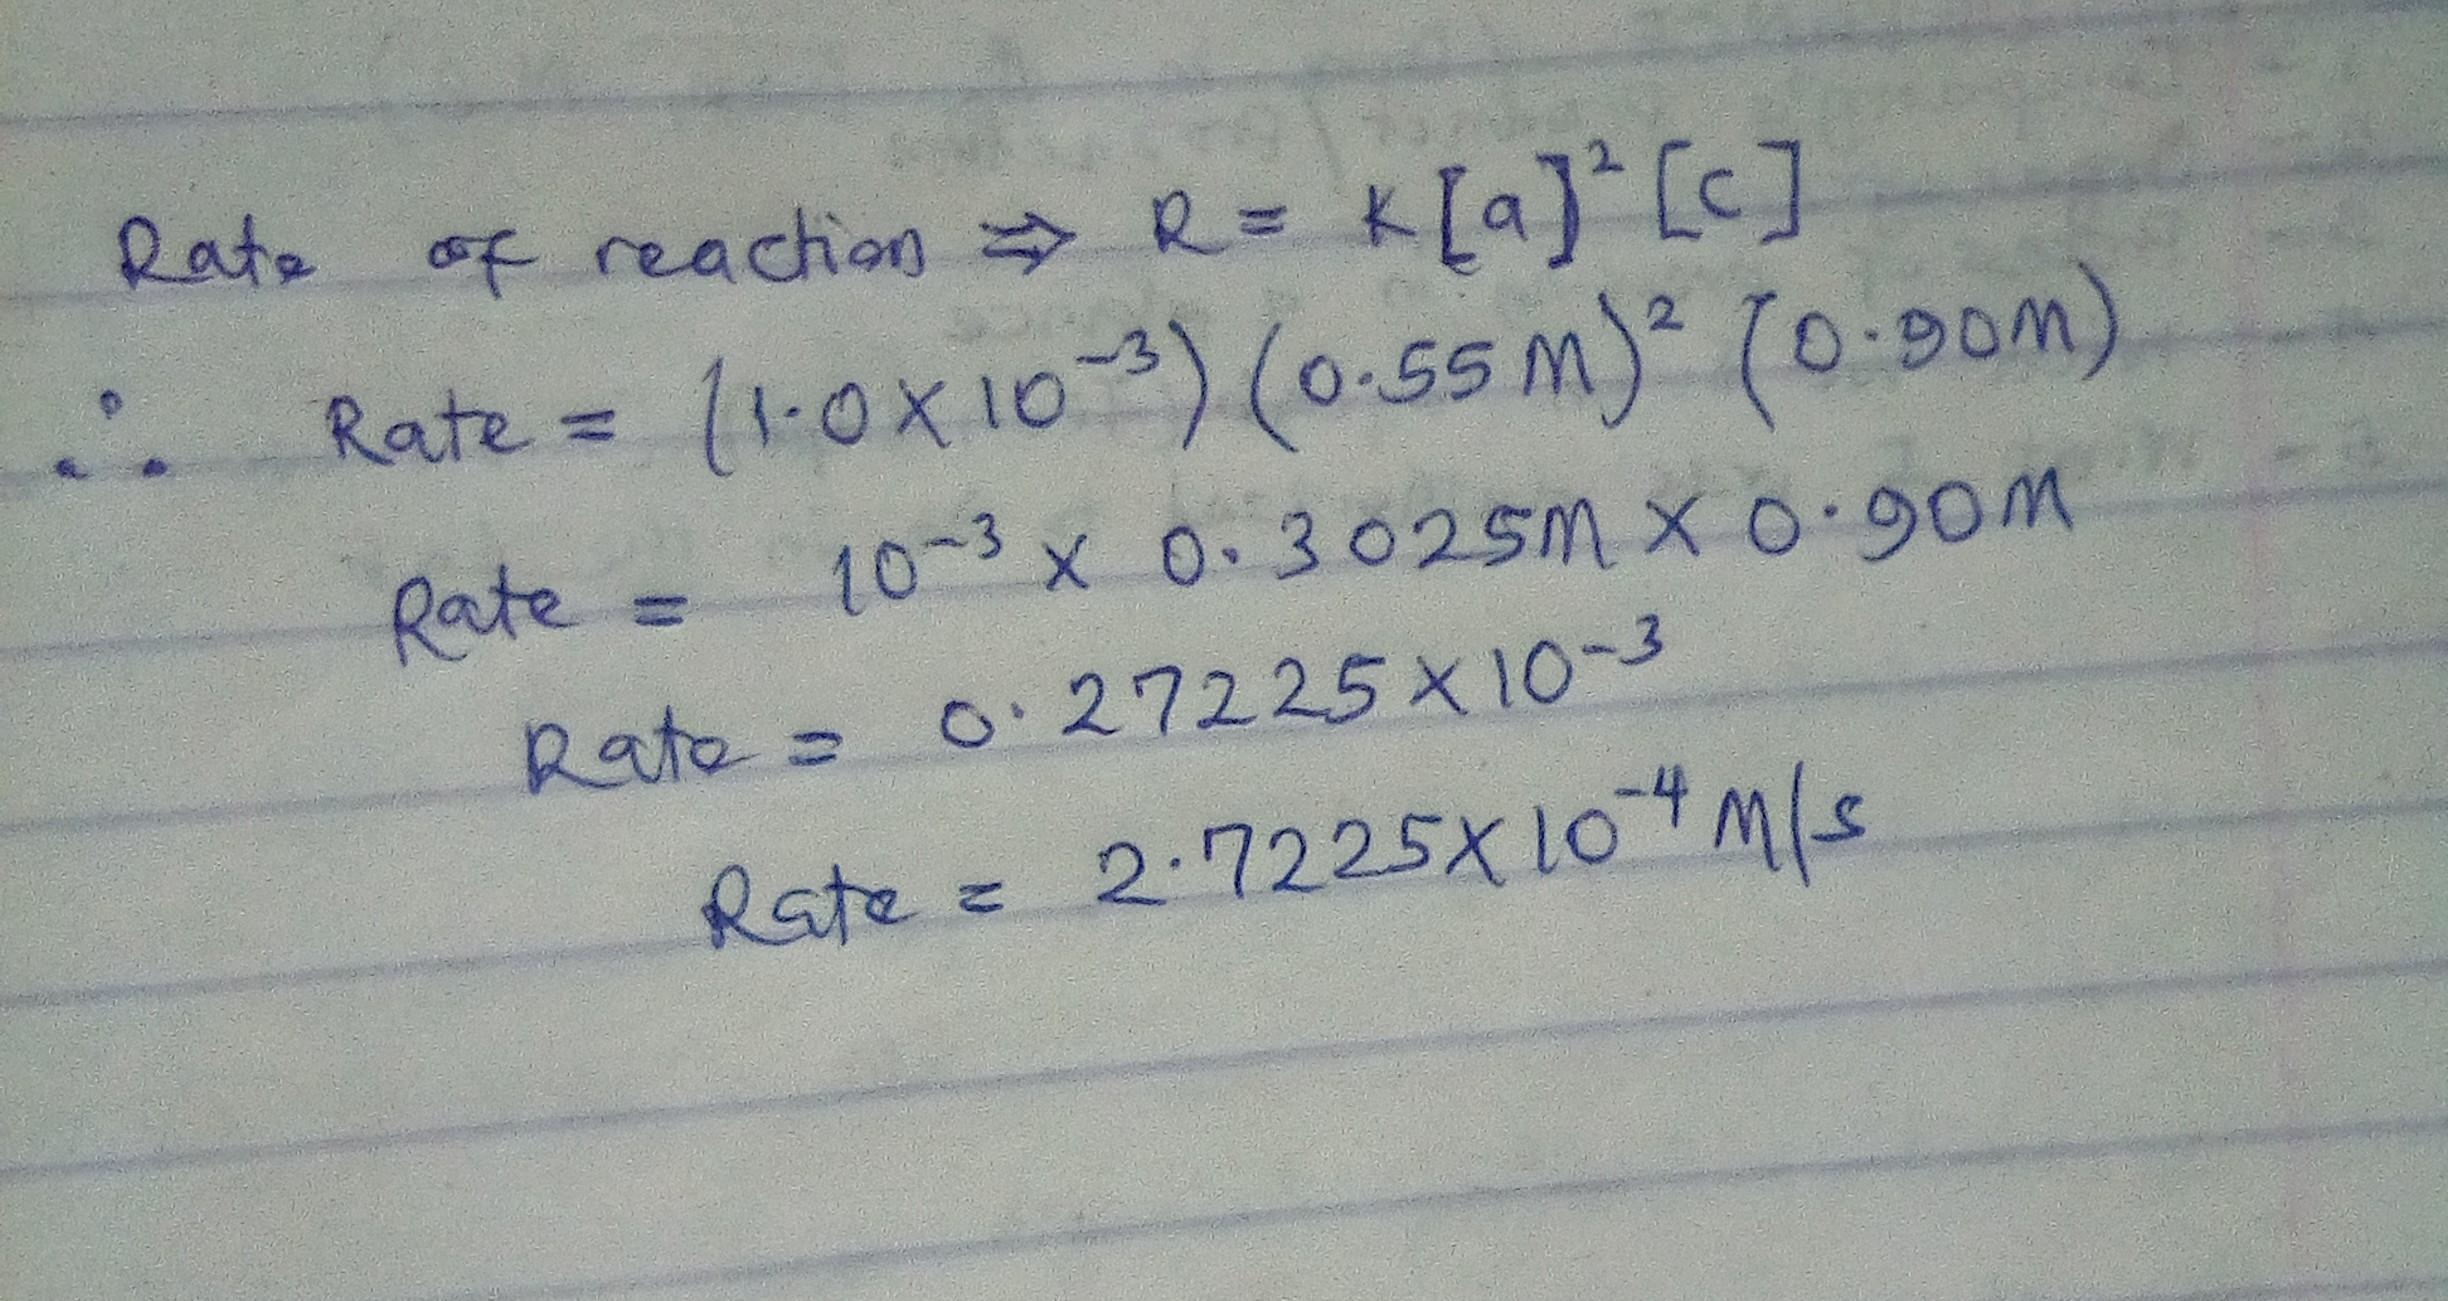 Rate of reaction ⇒ R = K[a]² [c]
∴ Rate = (1.0 × 10⁻³) (0.55 M)² (0.90M)
Rate = 10⁻³ × 0.3025M × 0.90M
Rate = 0.27225 × 10⁻³
Rate = 2.7225 × 10⁻⁴ M/s